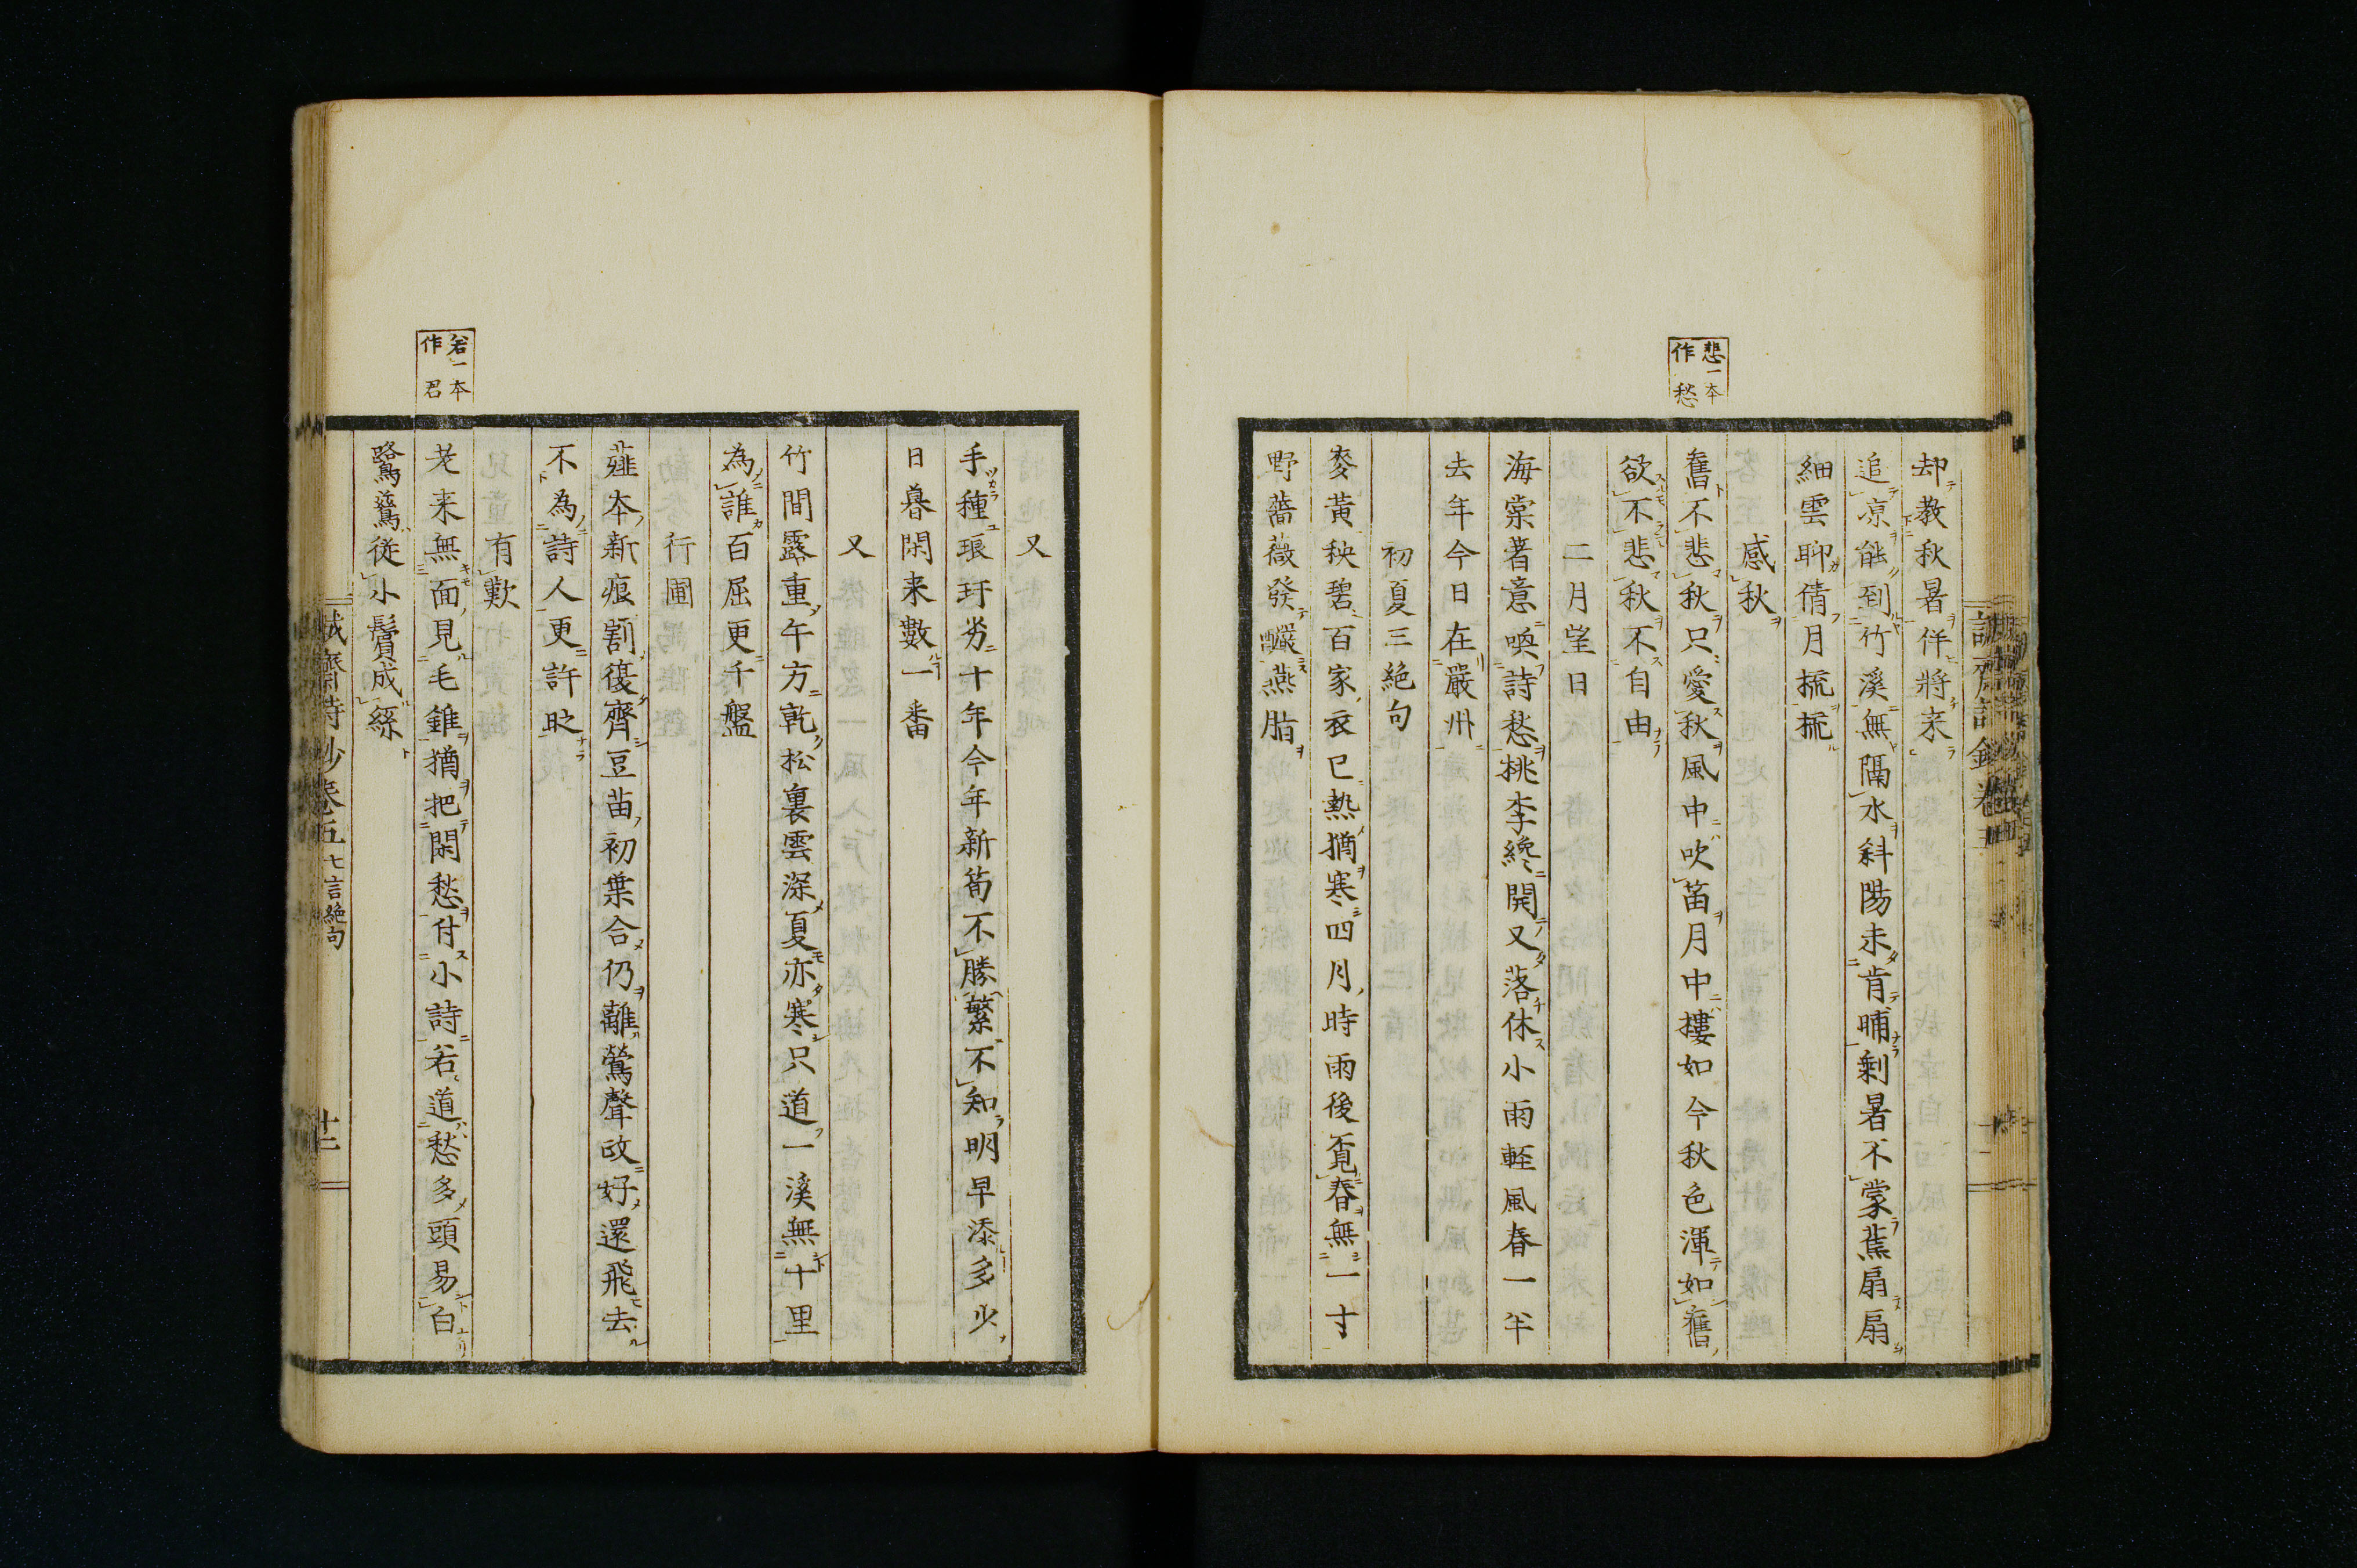 却教秋暑仟將来
追凉能到竹溪無隔水斜陽未肯晡剩暑不蒙蕉扇扇
細雲聊倩月梳梳
感秋
悲一本
作愁
舊不悲秋只愛秋風中吹笛月中摟如今秋色渾如舊
欲不悲秋不自由
二月望日
海棠著意喚詩愁桃李纔開又落休小雨輕風春一半
去年今日在嚴州
初夏三絶句
麥黃秧碧百家衣已熱猶寒四月時雨後覔春無一寸
野薔薇發釅燕脂
又
手種琅玕劣十年今年新筍不勝繁不知明早添多少
日暮閑来數一番
又
竹間露重午方乾松裏雲深夏亦寒只道一溪無十里
為誰百屈更千盤
行圃
薤本新痕割復齊豆苗初葉合仍離鶯聲政好還飛去
不為詩人更許時
有歎
若一本
作君
老来無面見毛錐猶把閑愁付小詩若道愁多頭易白
鷺鷥從小鬢成絲
誠齋詩鈔卷五 七言絶句 十二